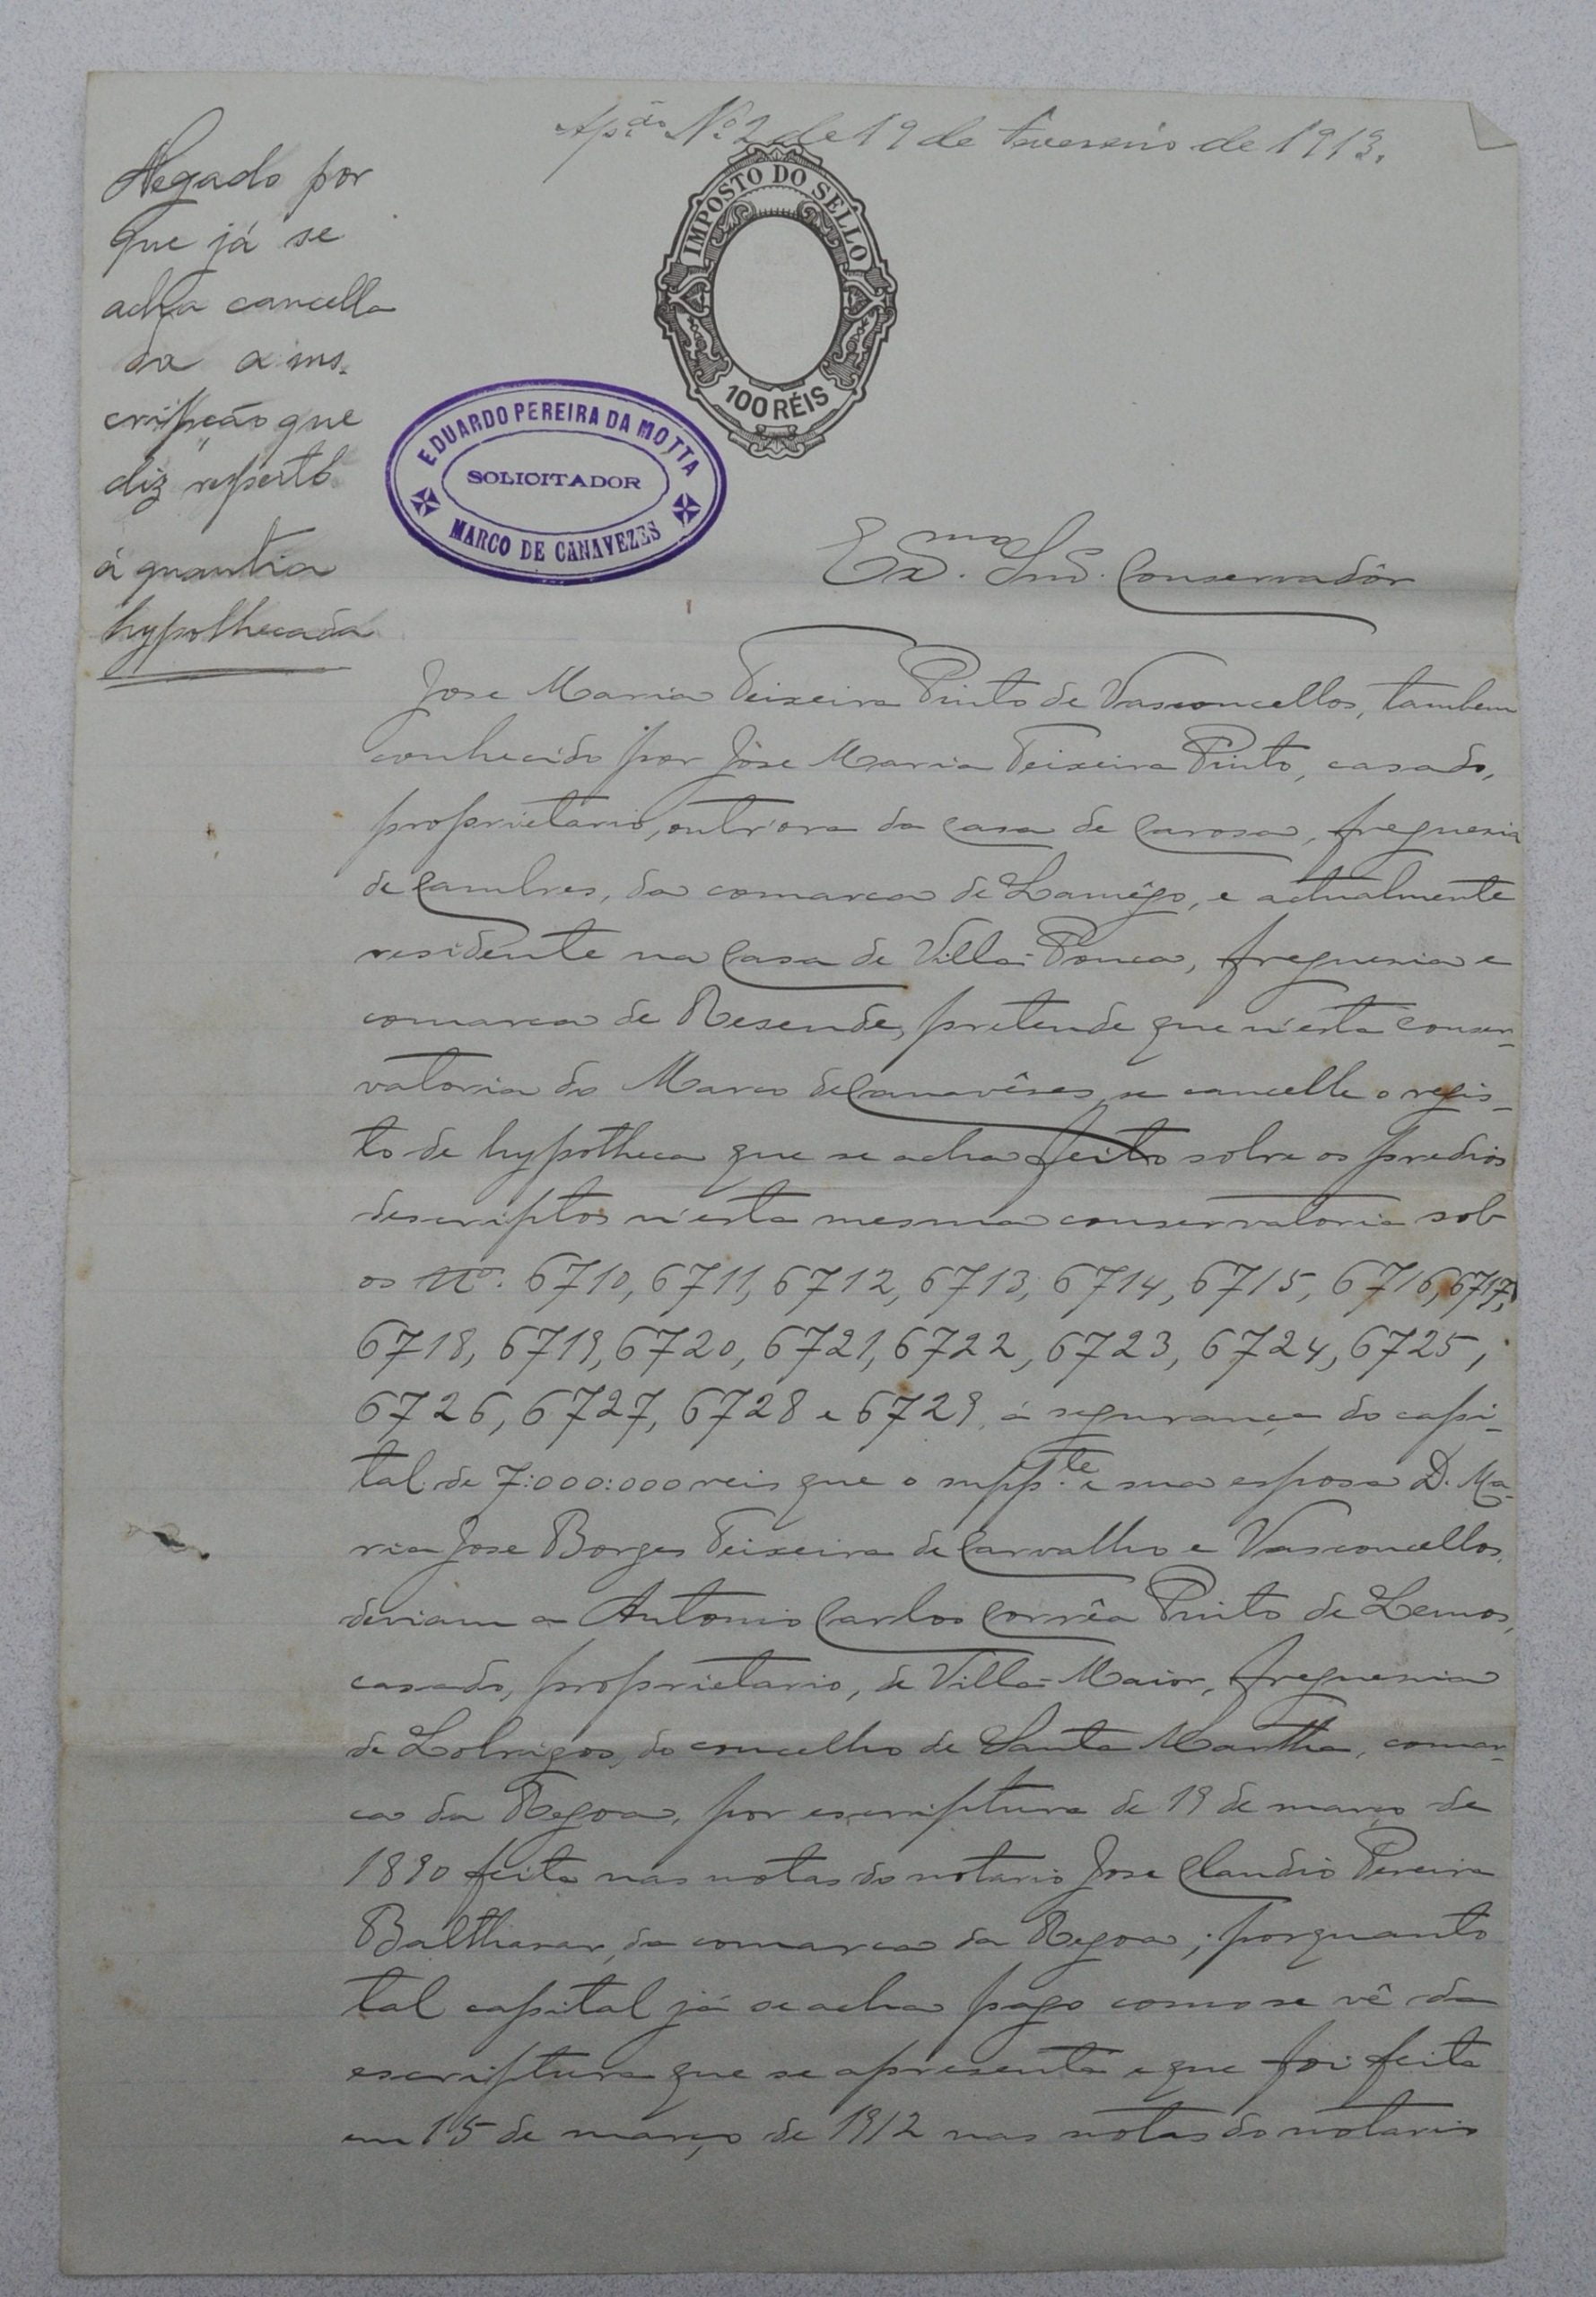 Ap.ção Nº 2 de 19 de Fevereiro de 1913.
Negado por
que já se
acha cancella
da a ins-
cripção que
diz respeito
á quantia
hypothecada
IMPOSTO DO SELLO
100 RÉIS
EDUARDO PEREIRA DA MOTTA
SOLICITADOR
MARCO DE CANAVEZES
Ex.mo Snr. Conservadôr
Jose Maria Teixeira Pinto de Vasconcellos, tambem
conhecido por Jose Maria Teixeira Pinto, casado,
proprietario, outr'ora da casa de Carosa, freguesia
de Cambres, da comarca de Lamêgo, e actualmente
residente na Casa de Villa-Pouca, freguesia e
comarca de Resende, pretende que n'esta conser-
vatoria do Marco de Canavêses se cancelle o regis-
to de hypotheca que se acha feito sobre os predios
descriptos n'esta mesma conservatoria sob
os Nos. 6710, 6711, 6712, 6713, 6714, 6715, 6716, 6717,
6718, 6719, 6720, 6721, 6722, 6723, 6724, 6725,
6726, 6727, 6728 e 6729, á segurança do capi-
tal de 7:000:000 reis que o supp.te e sua esposa D. Ma-
ria Jose Borges Teixeira de Carvalho e Vasconcellos,
deviam a Antonio Carlos Corrêa Pinto de Lemos,
casado, proprietario, de Villa-Maior, freguesia
de Lobrigos, do concelho de Santa Martha, comar-
ca da Regoa, por escriptura de 19 de março de
1890 feita nas notas do notario Jose Claudio Pereira
Balthasar, da comarca da Regoa; porquanto
tal capital já se acha pago como se vê da
escriptura que se apresenta e que foi feita
em 15 de março de 1912 nas notas do notario